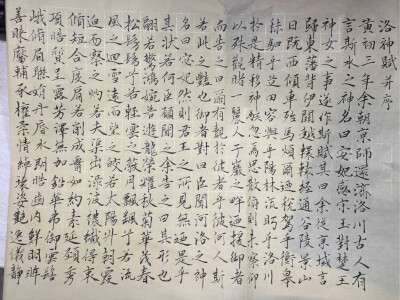 洛神賦并序
黃初三年余朝京師還濟洛川古人有
言斯水之神名曰宓妃感宋玉對楚王
神女之事遂作斯賦其曰余從京域言
歸東藩背伊闕越轘轅經通谷陵景山
日既西傾車殆馬煩爾迺稅駕乎蘅皋
秣駟乎芝田容與乎陽林流眄乎洛川
於是精移神駭忽焉思散俯則未察仰
以殊觀睹一麗人于巖之畔迺援御者
而告之曰爾有覿於彼者乎彼何人斯
若此之艷也御者對曰臣聞河洛之神
名曰宓妃然則君王之所見無迺是乎
其狀若何臣願聞之余告之曰其形也
翩若驚鴻婉若遊龍榮耀秋菊華茂春
松髣髴兮若輕雲之蔽月飄颻兮若流
風之迴雪遠而望之皎若太陽升朝霞
迫而察之灼若芙蕖出淥波穠纖得衷
脩短合度肩若削成腰如約素延頸秀
項皓質呈露芳澤無加鉛華弗御雲髻
峨峨脩眉聯娟丹唇外朗皓齒內鮮明眸
善睞靨輔承權情綽瓌姿艷逸儀靜